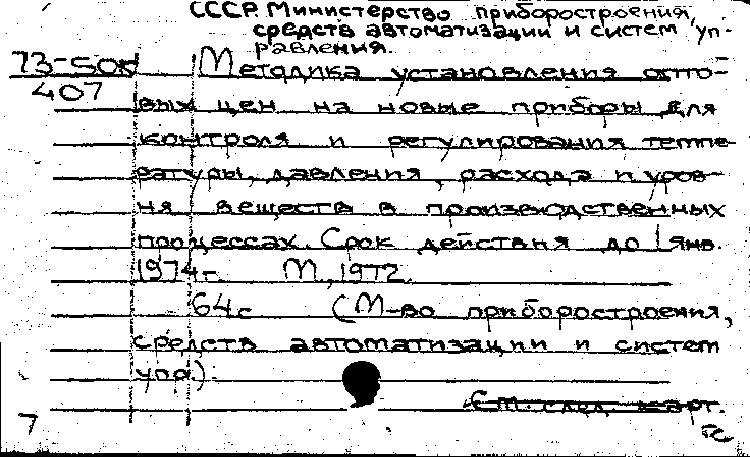 СССР. Министерство приборостроения,
средств автоматизации и систем уп-
равления.
73-50к
407
Методика установления опто-
вых цен на новые приборы для
контроля и регулирования темпе-
ратуры, давления, расхода и уров-
ня веществ в производственных
процессах. Срок действия до 1 янв.
1974 г. М., 1972.
64 с. (М-во приборостроения,
средств автоматизации и систем
упр).
См. след. карт.
7